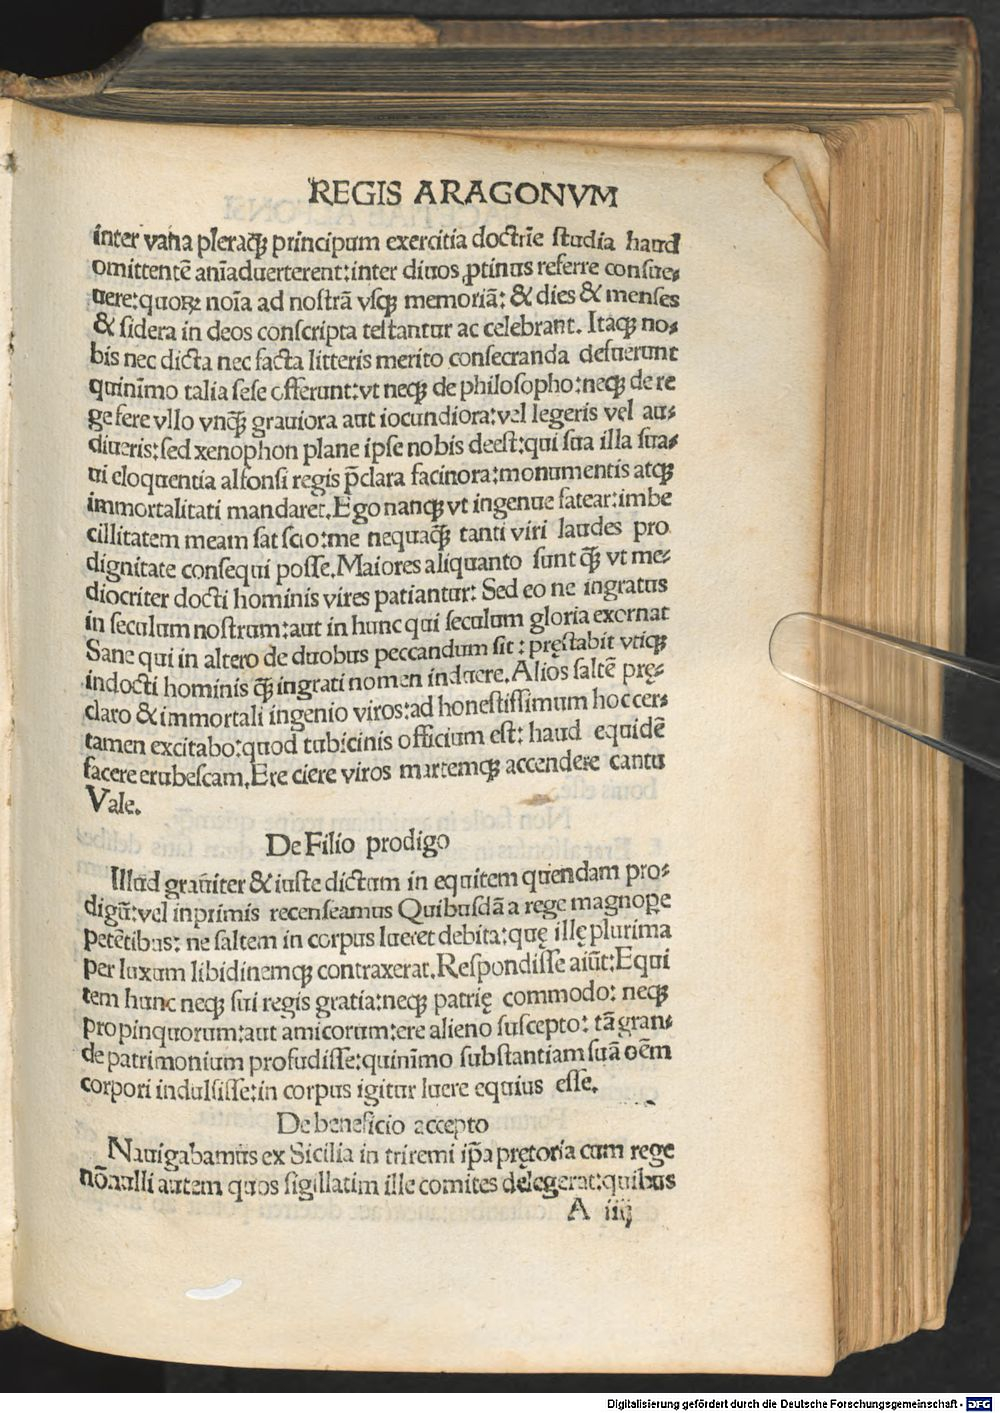 REGIS ARAGONVM
inter varia pleraq̃ principum exercitia doctrīe studia haud
omittentē aīaduerterent: inter diuos ꝓtinus referre consue⸗
uere: quoꝝ noīa ad nostrā vsq; memoriā: & dies & menses
& sidera in deos conscripta testantur ac celebrant. Itaq; no⸗
bis nec dicta nec facta litteris merito consecranda defuerunt
quinīmo talia sese offerunt: vt neq; de philosopho: neq; de re
ge fere vllo vnq̃ grauiora aut iocundiora: vel legeris vel au⸗
diueris: sed xenophon plane ipse nobis deest: qui sua illa sua⸗
ui eloquentia alfonsi regis p̄clara facinora: monumentis atq;
immortalitati mandaret. Ego nanq; vt ingenue fatear: imbe
cillitatem meam sat scio: me nequaq̃ tanti viri laudes pro
dignitate consequi posse. Maiores aliquanto sunt q̃ vt me⸗
diocriter docti hominis vires patiantur: Sed eo ne ingratus
in seculum nostrum: aut in hunc qui seculum gloria exornat
Sane qui in altero de duobus peccandum sit: pręstabit vtiq;
indocti hominis q̃ ingrati nomen induere. Alios saltē prę⸗
claro & immortali ingenio viros: ad honestissimum hoc cer⸗
tamen excitabo: quod tubicinis officium est: haud equidē
facere erubescam. Ere ciere viros martemq; accendere cantu
Vale.
De Filio prodigo
Illud grauiter & iuste dictum in equitem quendam pro⸗
digū: vel inprimis recenseamus Quibusdā a rege magnoꝑe
petētibus: ne saltem in corpus lueret debita: quę illę plurima
per luxum libidinemq; contraxerat. Respondisse aiūt: Equi
tem hunc neq; sui regis gratia: neq; patrię commodo: neq;
propinquorum: aut amicorum: ere alieno suscepto: tā gran⸗
de patrimonium profudisse: quinīmo substantiam suā oēm
corpori indulsisse: in corpus igitur luere equius esse.
De beneficio accepto
Nauigabamus ex Sicilia in triremi ip̄a pretoria cum rege
nōnulli autem quos sigillatim ille comites delegerat: quibus
A iiij
Digitalisierung gefördert durch die Deutsche Forschungsgemeinschaft - DFG